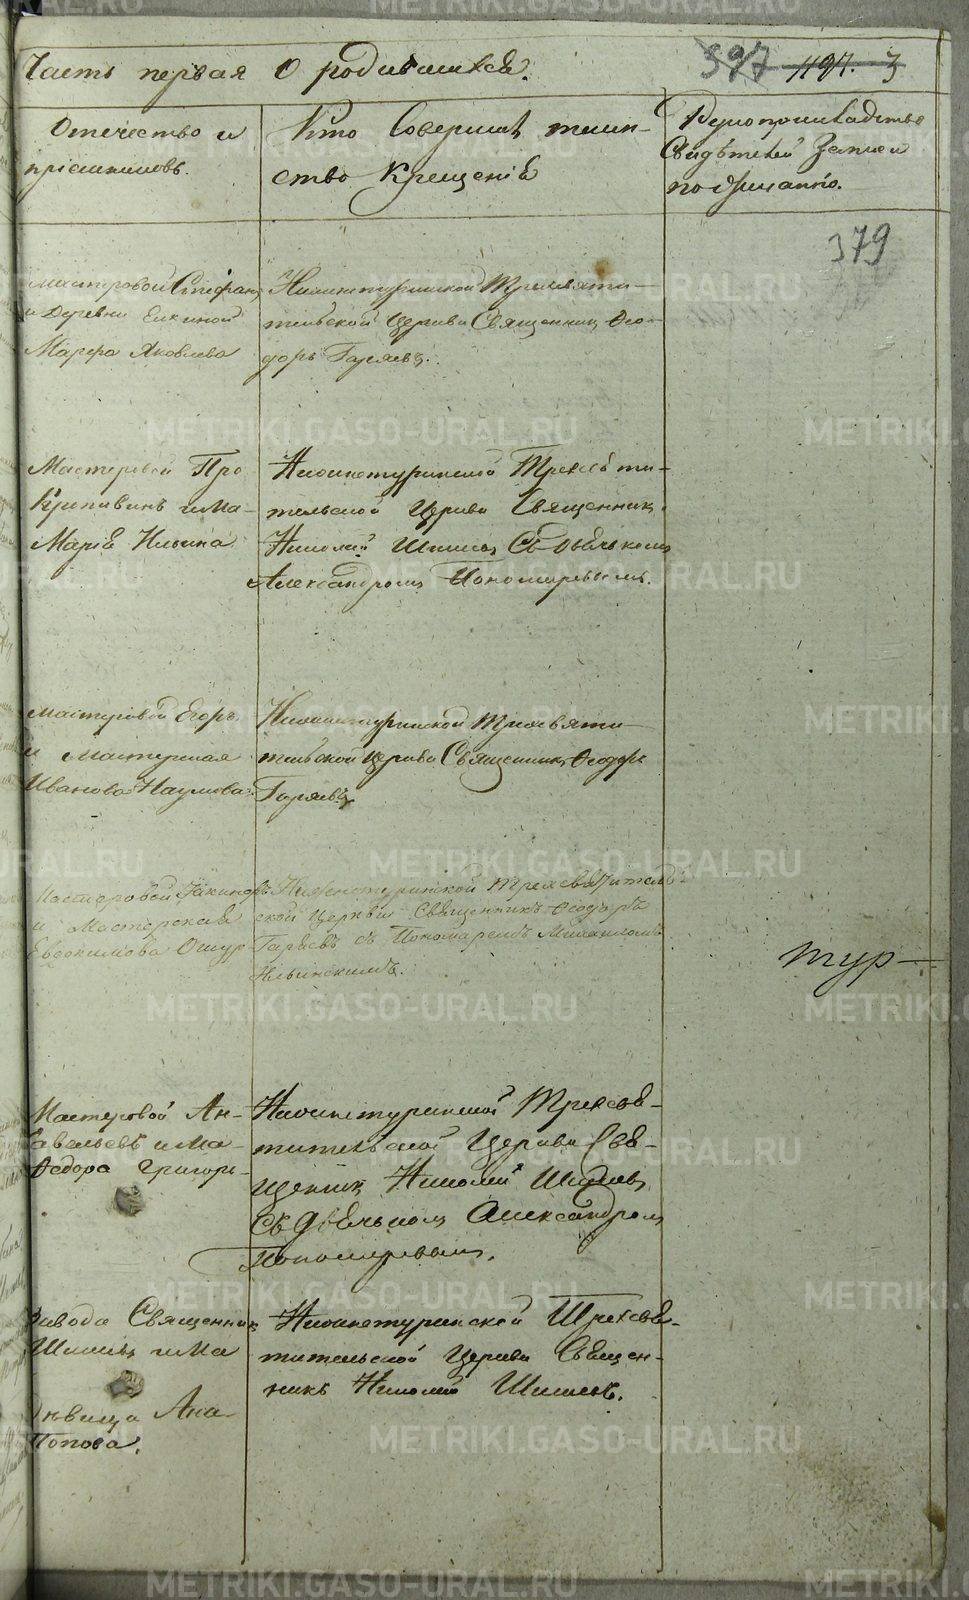 Часть первая О родившихся.
397 1197. 3
Отечество и
пріемниковъ.
Кто Совершалъ таин-
ство Крещенія
Рукоприкладство
Свидѣтелей Записи
по желанію.
379
мастеровой Стефанъ
и Деревни Елкиной
Марфа Яковлева
Нижнетуринской Трехсвяти-
тельской Церкви Священникъ Ѳео-
доръ Гаряевъ.
Мастеровой Про
Крапивинъ и Ма-
Марія Ильина
Нижнетуринской Трехсвяти-
тельской Церкви Священникъ
Николай Шишевъ Съ Дьячкомъ
Александромъ Пономаревымъ.
мастеровой Егоръ
и мастерская
Иванова Наумова
Нижнетуринской Трехсвяти-
тельской Церкви Священникъ Ѳеодоръ
Гаряевъ
Мастеровой Іакинфъ
и Мастерская
Евдокимова Ошур
Нижнетуринской Трехсвятитель-
ской Церкви Священникъ Ѳеодоръ
Гаряевъ съ Пономаремъ Михаиломъ
Ильинскимъ.
тур
Мастеровой Ан-
Савельевъ и Ма-
Ѳедора Григорь-
Нижнетуринской Трехсвя-
тительской Церкви Свя-
щеникъ Николай Шишевъ
Съ Дьячкомъ Александромъ
Пономаревымъ.
завода Священник
Шишевъ и Ма
Дѣвица Анна
Попова.
Нижнетуринской Трехсвя-
тительской Церкви Священ-
никъ Николай Шишевъ.
METRIKI.GASO-URAL.RU